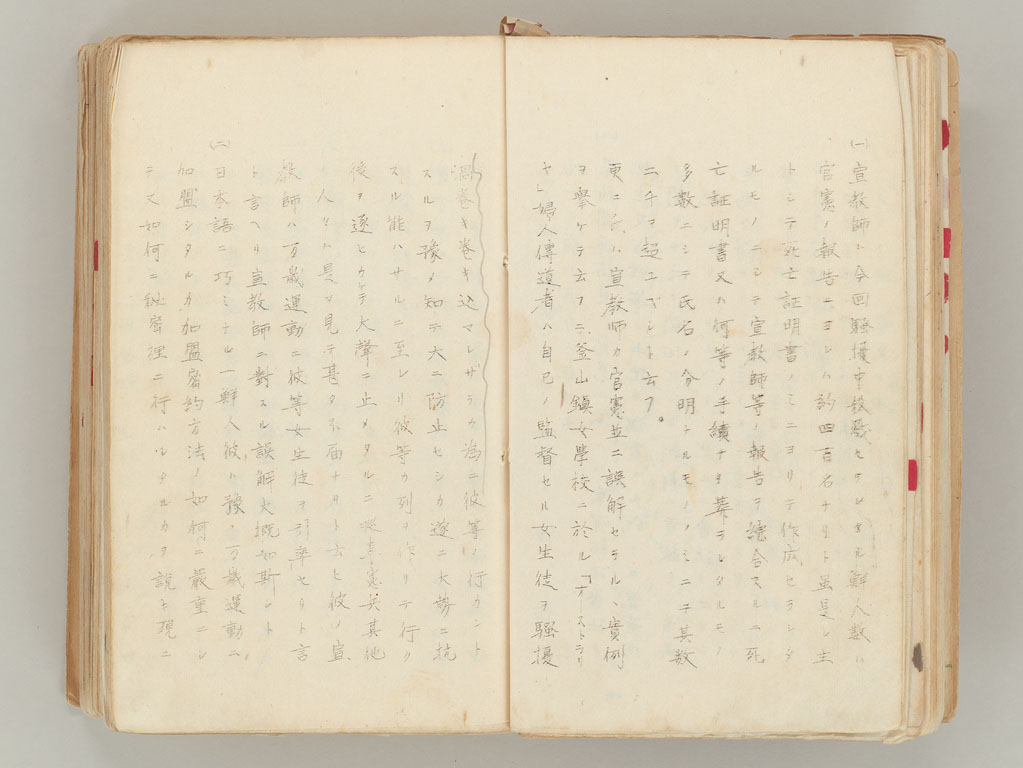 (一)宣教師ト今回騒擾中殺戮セラレタル鮮人数ハ
官憲ノ報告ニヨレハ約四百名ナリト虽是レ主
トシテ死亡証明書ノミニヨリテ作成セラレタ
ルモノニシテ宣教師等ノ報告ヲ綜合スルニ死
亡証明書又ハ何等ノ手續ナク葬ラレタルモノ
多数ニシテ氏名ノ分明トルモノノミニテ其数
二千ヲ超ユベシト云フ。
更ニ ハ宣教師カ官憲並ニ誤解セラルヽ実例
ヲ挙ケテ云フニ、釜山鎮女學校ニ於ル「オーストラリ
ヤ」婦人傳道者ハ自己ノ監督セル女生徒ヲ騒擾
渦巻キ巻キ込マレザラン為ニ彼等ノ行カント
スルヲ豫メ知テ大ニ防止セシカ遂ニ大勢ニ抗
スル能ハサルニ至レリ彼等カ列ヲ作リテ行ク
後ヲ逐ヒカケテ大聲ニ止メタルニ 憲兵其他
ノ人々ハ是ヲ見テ甚タ不届ナリト云ヒ彼ノ宣
教師ハ万歳運動ニ彼等女生徒ヲ引率セリト言
ト言ヘリ宣教師ニ對スル誤解大概如斯シト
(二)日本語ニ巧ミナル一鮮人彼ハ豫 万歳運動ニ
加盟シタルカ加盟密約方法ノ如何ニ嚴重ニシ
テ又如何ニ秘密裡ニ行ハレタルカヲ説キ現ニ